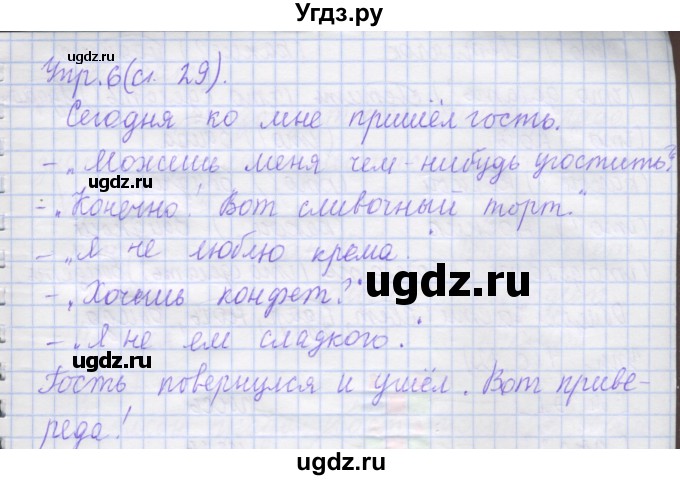 Угдз.ру
ugdz.ru
Упр. 6 (с. 29).
Сегодня ко мне пришёл гость.
– „Можешь меня чем-нибудь угостить?"
– „Конечно! Вот сливочный торт."
– „Я не люблю крема."
ugdz.ru
– „Хочешь конфет?"
ugdz.ru
– „Я не ем сладкого."
ugdz.ru
Гость повернулся и ушёл. Вот приве-
реда!
ugdz.ru
ugdz.ru